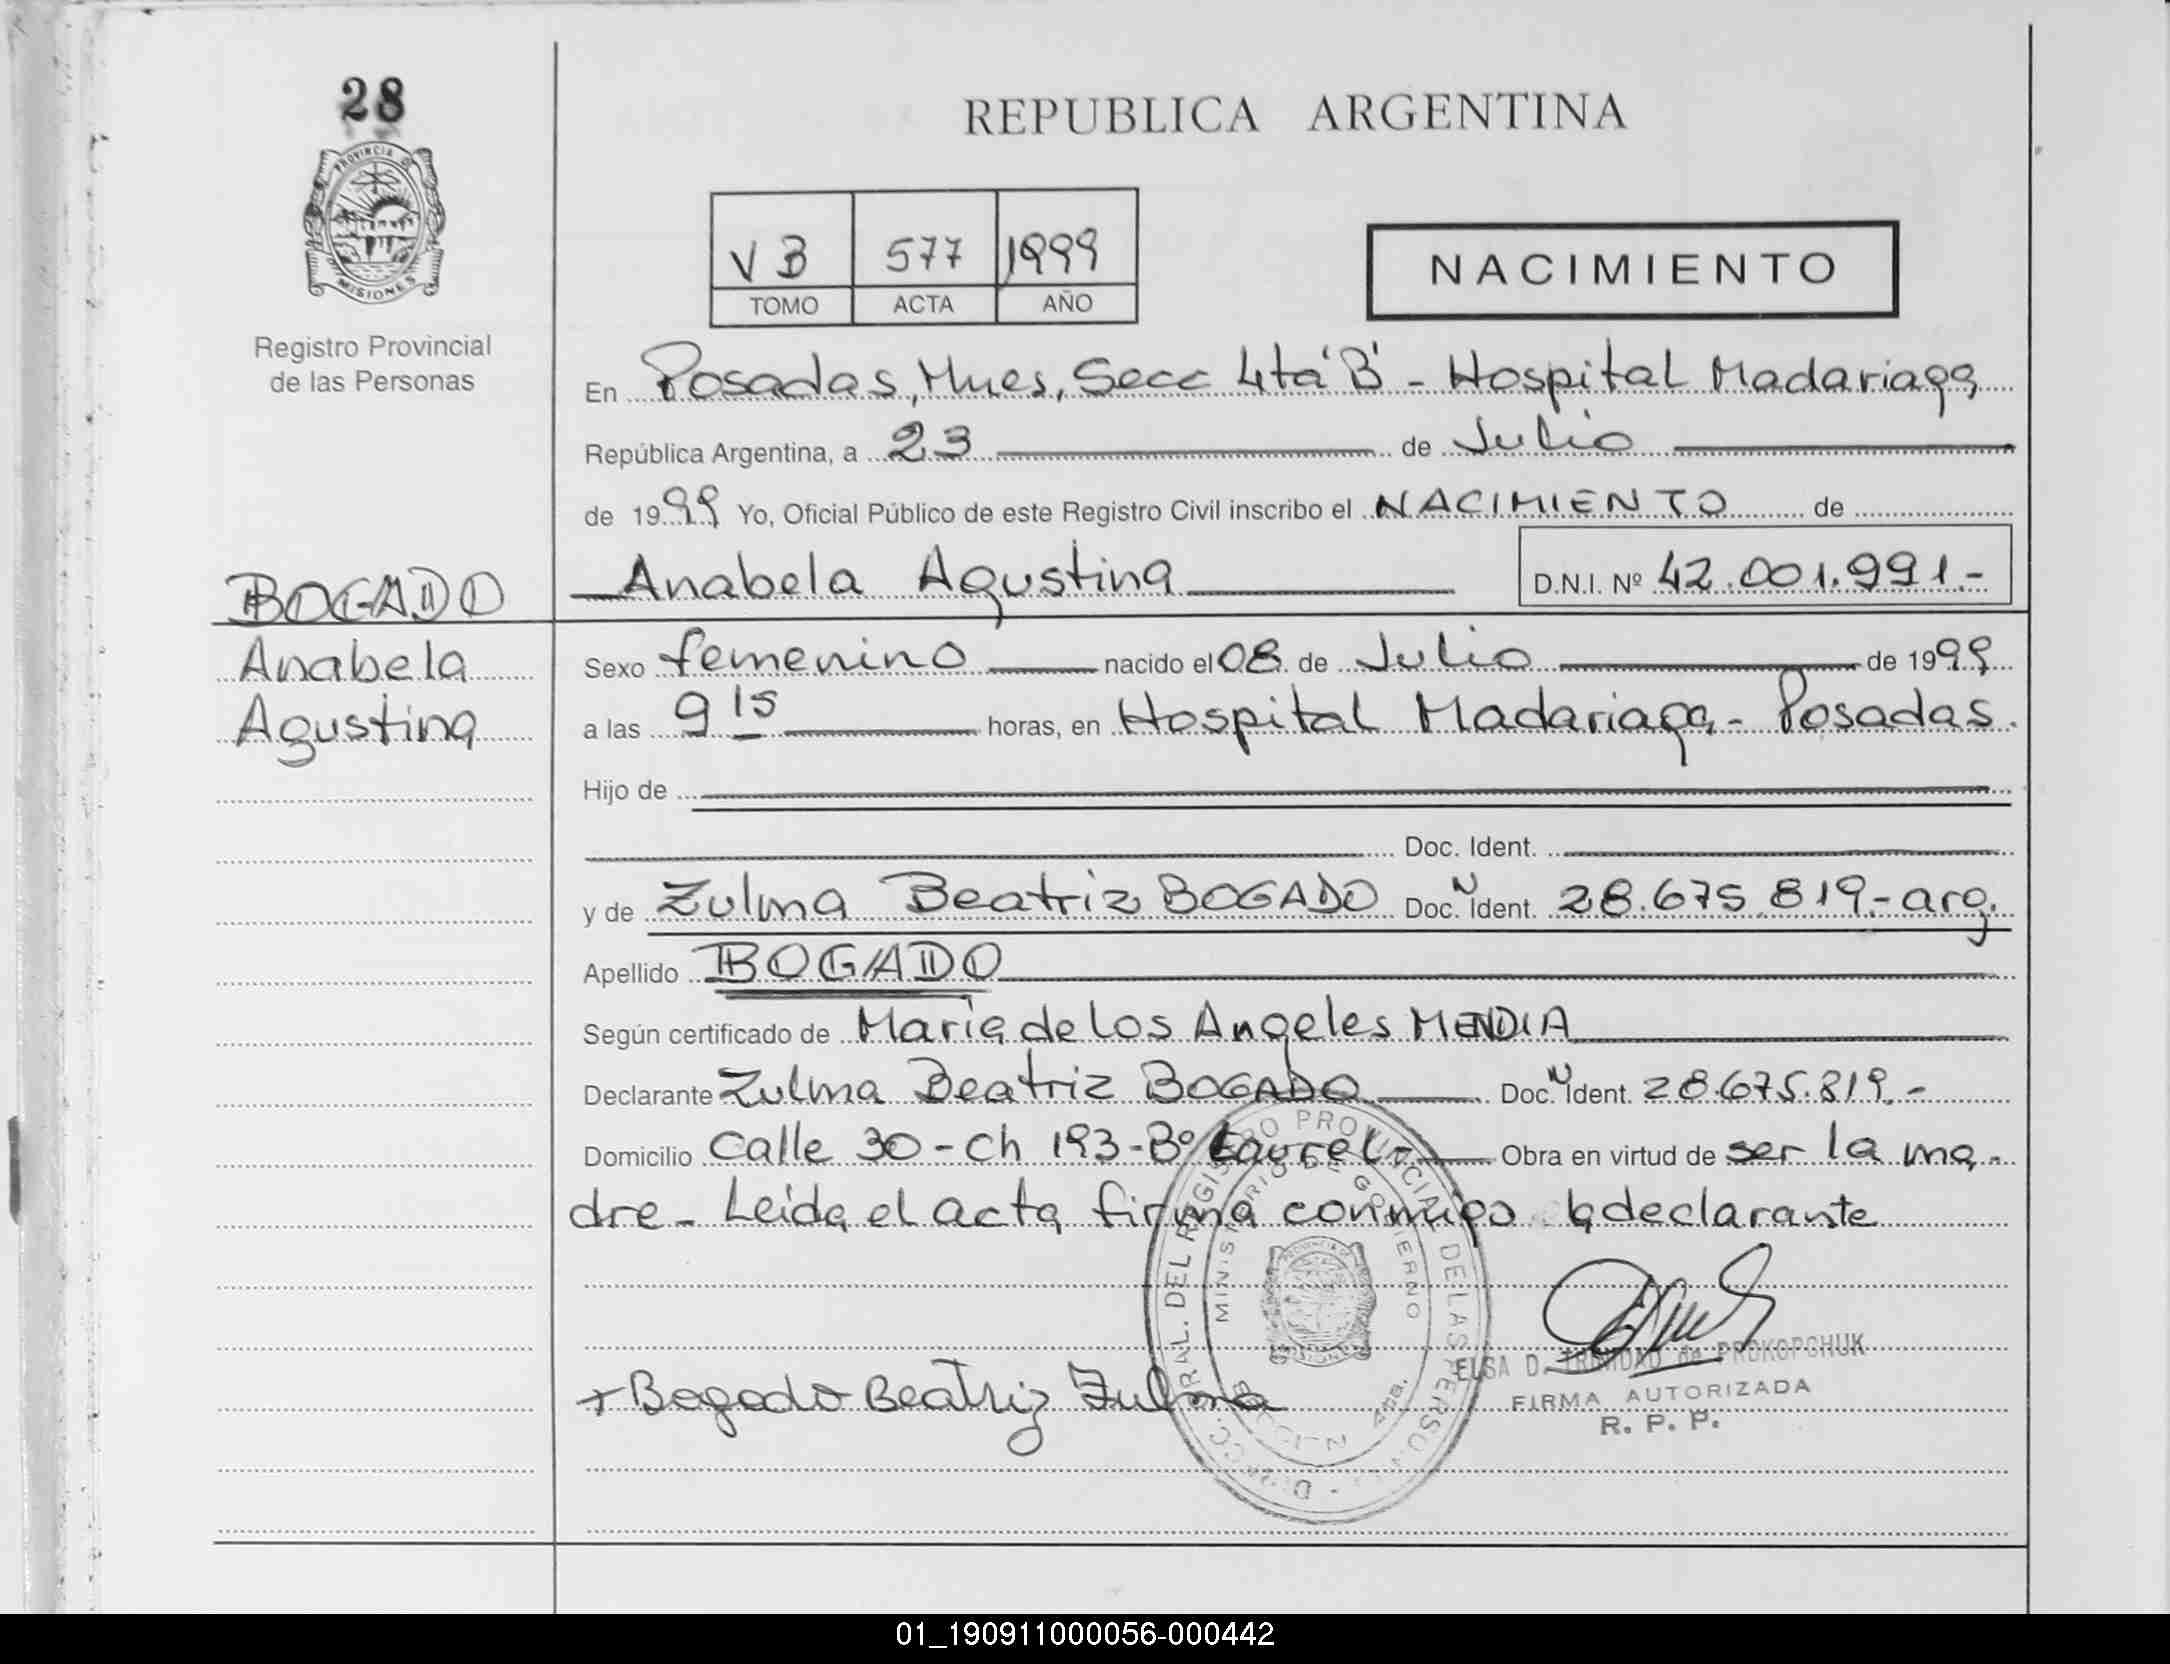 28
PROVINCIA DE
MISIONES
Registro Provincial
de las Personas
BOGADO
Anabela
Agustina
REPUBLICA ARGENTINA
V B 577 1999
TOMO ACTA AÑO
NACIMIENTO
En Posadas, Mnes, Secc 4ta 'B' - Hospital Madariaga
República Argentina, a 23 de Julio
de 1999 Yo, Oficial Público de este Registro Civil inscribo el NACIMIENTO de
Anabela Agustina D.N.I. Nº 42.001.991.-
Sexo femenino nacido el 08 de Julio de 1999
a las 9 15 horas, en Hospital Madariaga - Posadas.
Hijo de
Doc. Ident.
y de Zulma Beatriz BOGADO Doc. N Ident. 28.675.819.- arg.
Apellido BOGADO
Según certificado de Maria de los Angeles MENDIA
Declarante Zulma Beatriz BOGADO Doc. N Ident. 28.675.819.-
Domicilio Calle 30 - Ch 193 - Bº Laurel - Obra en virtud de ser la ma-
dre - Leida el acta firma conmigo la declarante
DEL REGISTRO PROVINCIAL DE LAS
MINISTERIO DE GOBIERNO
ELSA D. TRINIDAD de PROKOPCHUK
FIRMA AUTORIZADA
R. P. P.
+ Bogado Beatriz Zulma
01_190911000056-000442